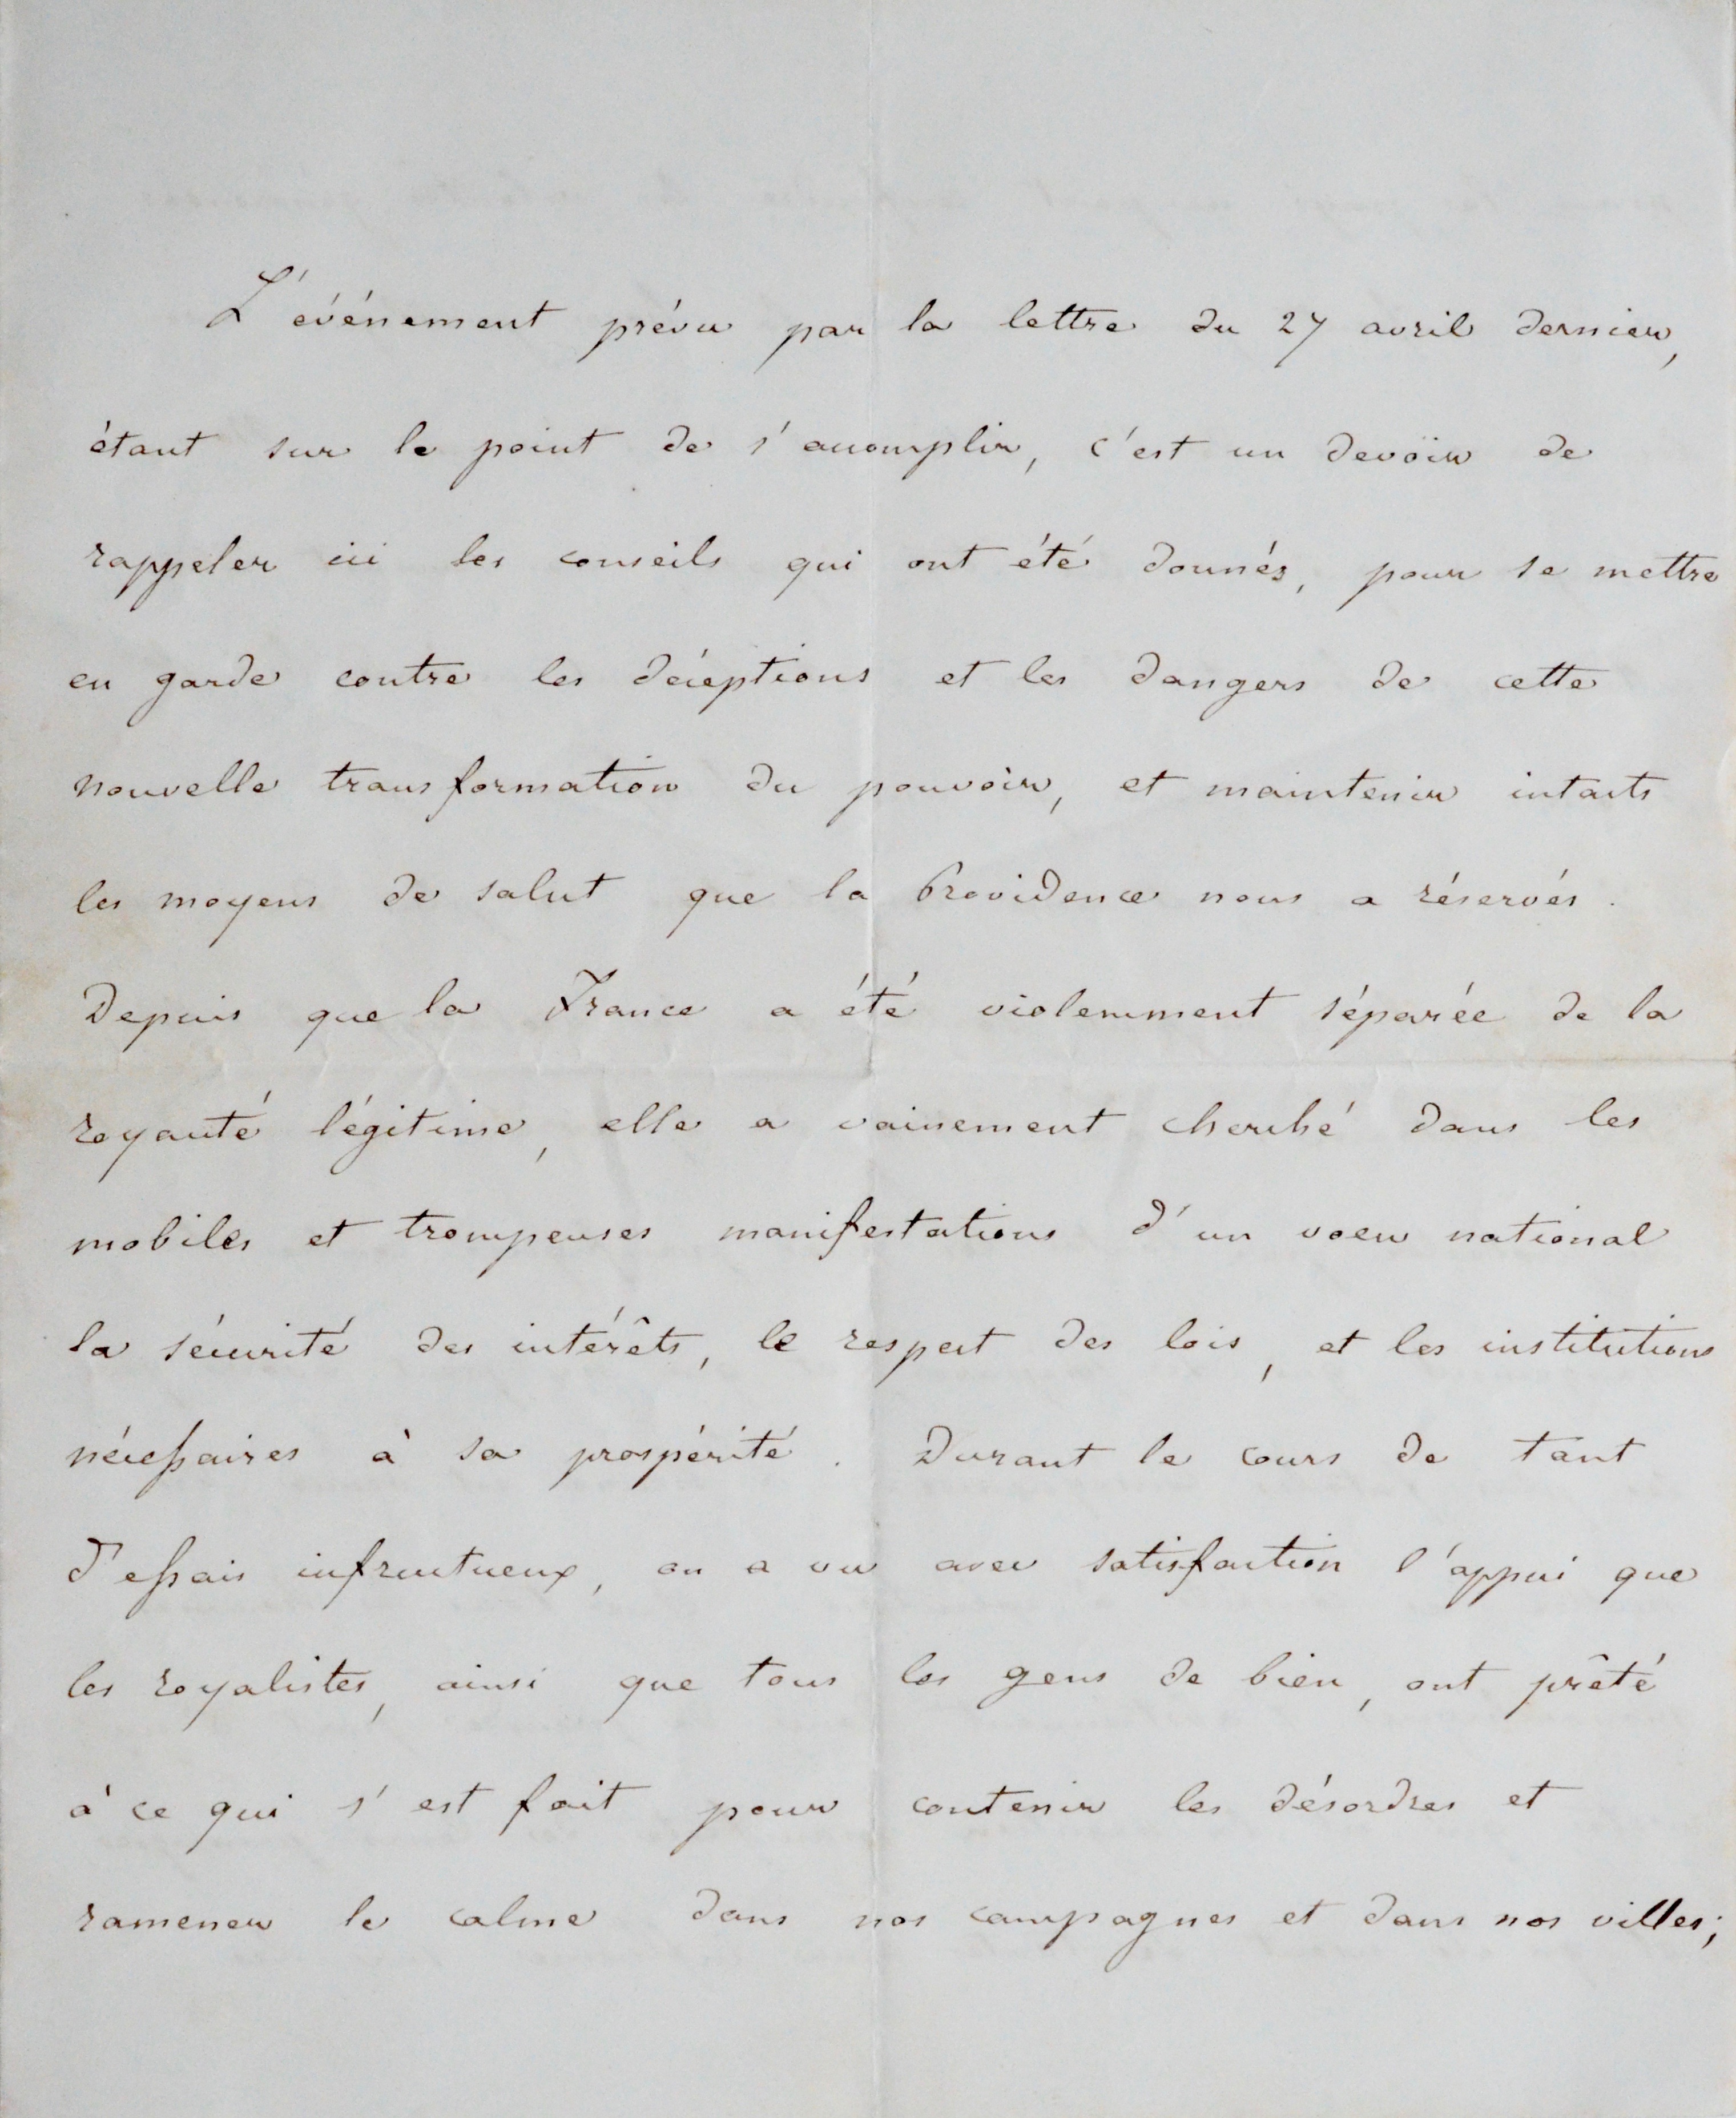 L'événement prévu par la lettre du 27 avril dernier,
étant sur le point de s'accomplir, c'est un devoir de
rappeler ici les conseils qui ont été donnés, pour se mettre
en garde contre les déceptions et les dangers de cette
nouvelle transformation du pouvoir, et maintenir intacts
les moyens de salut que la Providence nous a réservés.
Depuis que la France a été violemment séparée de la
royauté légitime, elle a vainement cherché dans les
mobiles et trompeuses manifestations d'un voeu national
la sécurité des intérêts, le respect des lois, et les institutions
nécessaires à sa prospérité. Durant le cours de tant
d'essais infructueux, on a vu avec satisfaction l'appui que
les royalistes, ainsi que tous les gens de bien, ont prêté
à ce qui s'est fait pour contenir les désordres et
ramener le calme dans nos campagnes et dans nos villes;